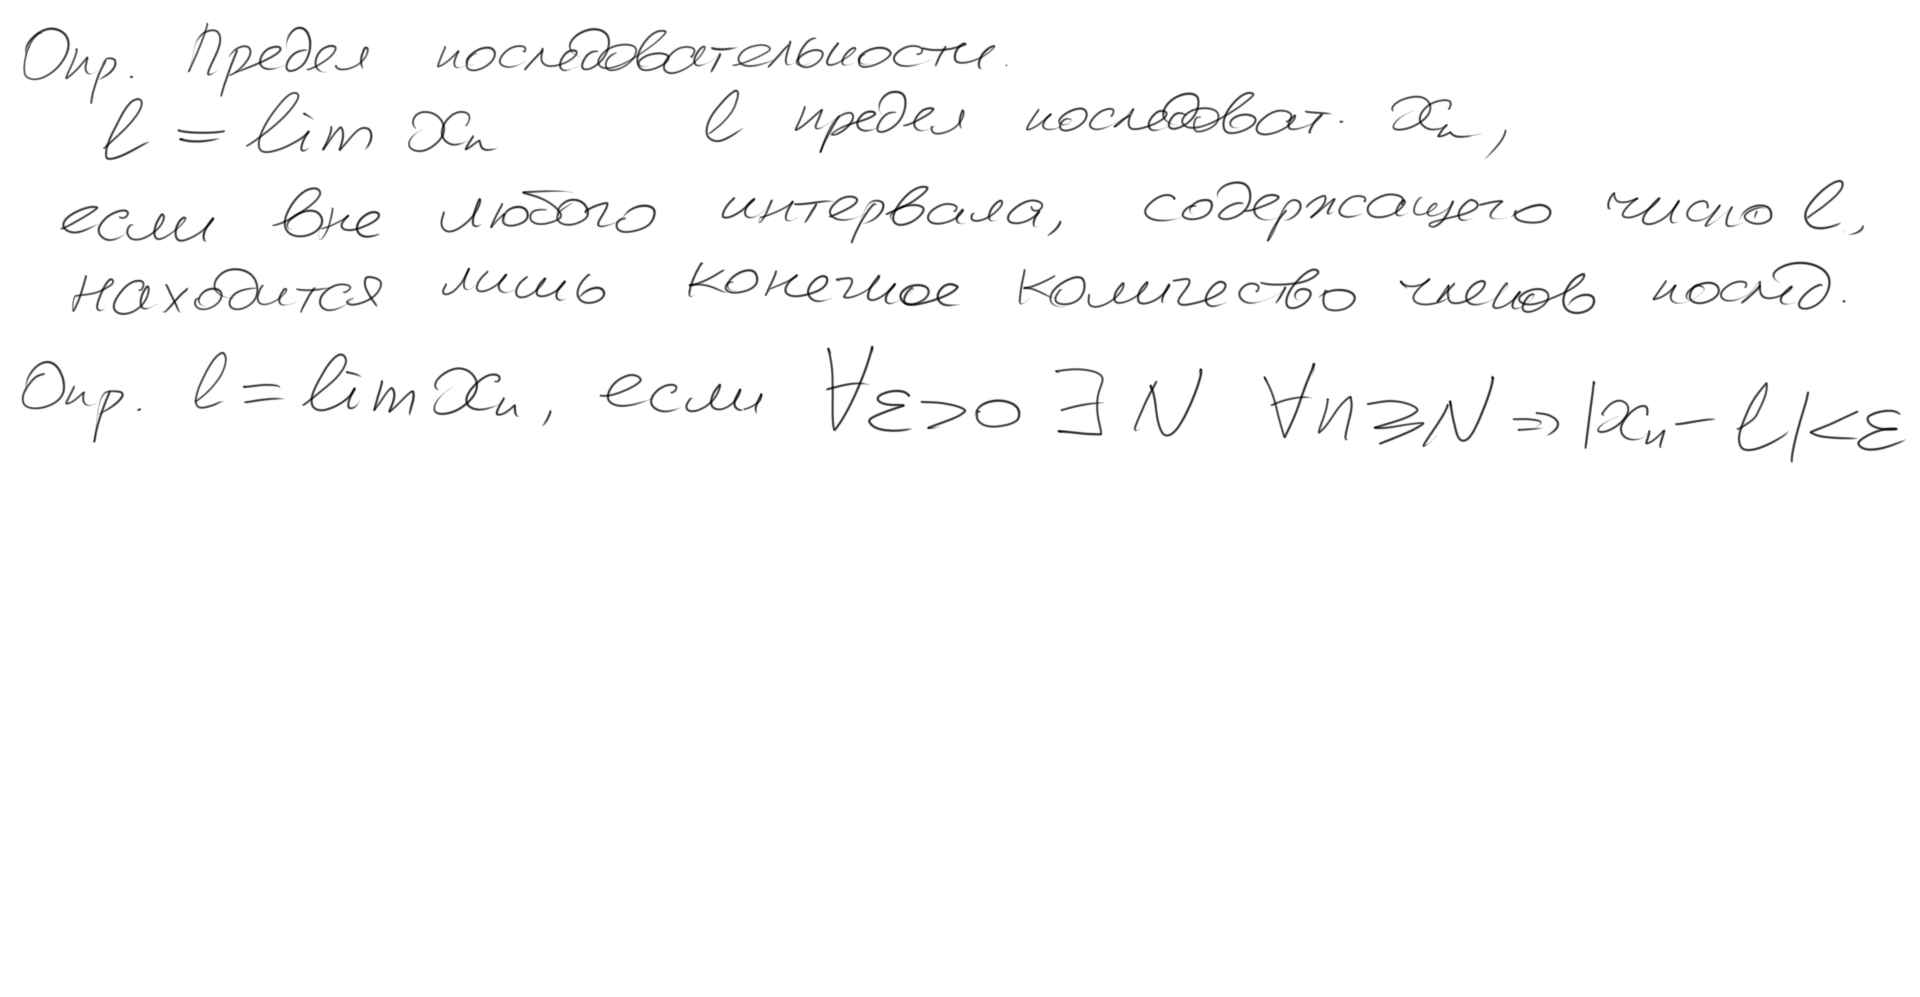 Опр. Предел последовательности.
l = lim xₙ l предел последоват. xₙ,
если вне любого интервала, содержащего число l,
находится лишь конечное количество членов послед.
Опр. l = lim xₙ, если ∀ε>0 ∃ N ∀n⩾N ⇒ |xₙ - l|<ε